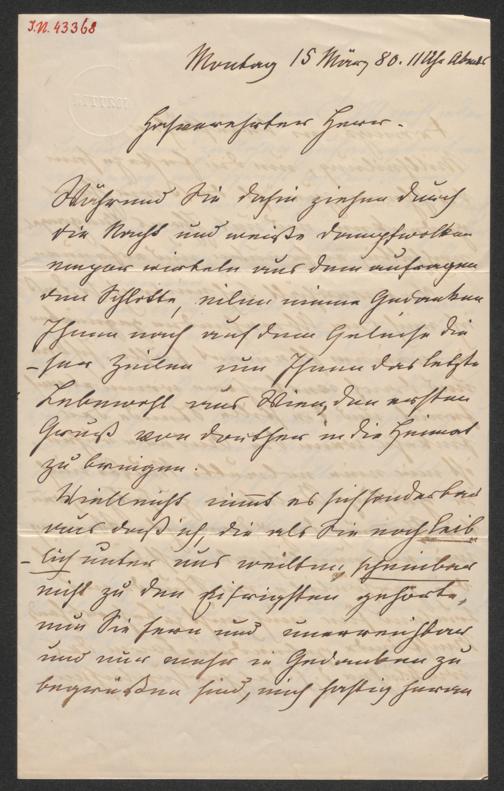 I.N. 43368
Montag 15 März 80. 11 Uhr Abends
Hochverehrter Herr.
Während Sie dahin ziehen durch
die Nacht und weiße Dampfwolken
empor wirbeln aus dem aufragen
den Schlotte, eilen meine Gedanken
Ihnen nach auf dem Geleise die
-ser Zeilen um Ihnen das letzte
Lebewohl aus Wien, den ersten
Gruß von dorther in die Heimat
zu bringen.
Vielleicht nimmt es sich sonderbar
aus daß ich, die als Sie noch leib
-lich unter uns weilten, scheinbar
nicht zu den Eifrigsten gehörte,
nun Sie fern und unerreichbar
und nur mehr in Gedanken zu
begrüßen sind, mich hastig heran